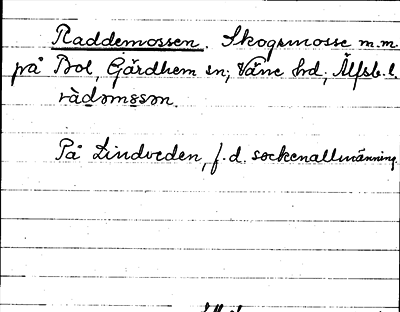 Raddemossen. Skogsmosse m.m.
på Bol, Gärdhem sn; Väne hd, Älfsb. l.
ràdəmɔsən.
På Lindveden, f. d. sockenallmänning.